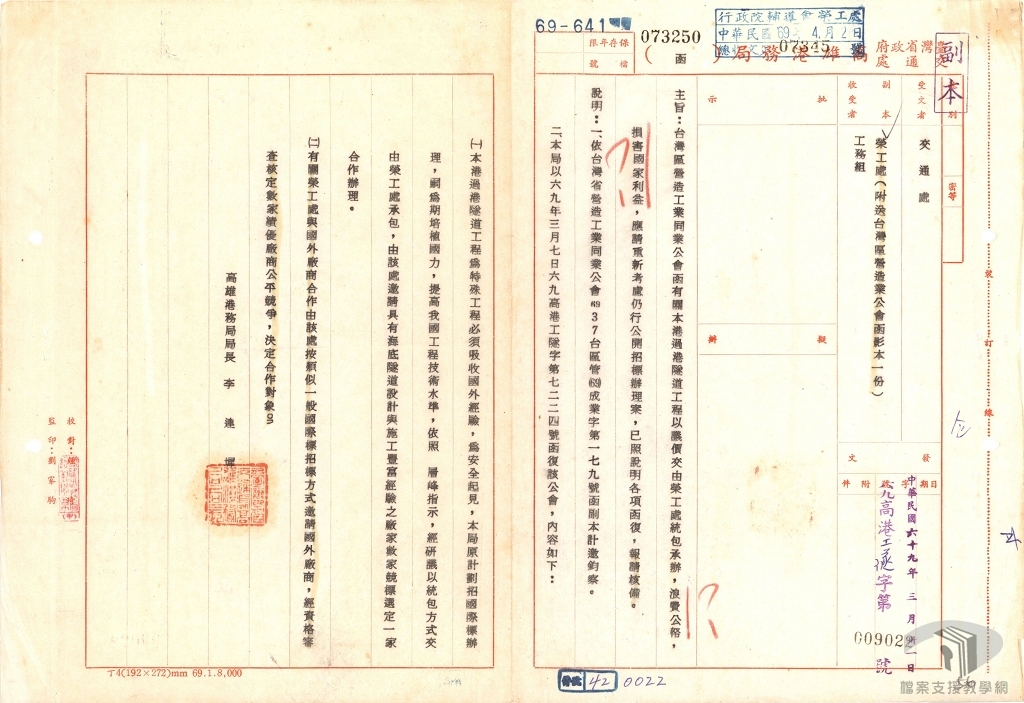 69-641
保存年限
檔號
073250
行政院輔導會榮工處
中華民國69年4月2日
總收文 07345 號
副本
台灣省政府交通處
高雄港務局（函）
密等
受文者
交通處
副本收受者
榮工處（附送台灣區營造業公會函影本一份）
工務組
批示
擬辦
發文
日期
字號
附件
中華民國六十九年三月
六九高港工隧字第
009029
號
主旨：台灣區營造工業同業公會函有關本港過港隧道工程以議價交由榮工處統包承辦，浪費公帑，
損害國家利益，應請重新考慮仍行公開招標辦理案，已照說明各項函復，報請核備。
說明：一、依台灣省營造工業同業公會69 3 7台區營(69)成業字第一七九號函副本計邀鈞察。
二、本局以六九年三月七日六九高港工隧字第七二二四號函復該公會，內容如下：
(一)本港過港隧道工程為特殊工程必須吸收國外經驗，為安全起見，本局原計劃招國際標辦
理，嗣為期培植國力，提高我國工程技術水準，依照　層峰指示，經研議以統包方式交
由榮工處承包，由該處邀請具有海底隧道設計與施工豐富經驗之廠家數家競標選定一家
合作辦理。
(二)有關榮工處與國外廠商合作由該處按類似一般國際標招標方式邀請國外廠商，經資格審
查核定數家績優廠商公平競爭，決定合作對象。
高雄港務局局長　李連墀
校對：
監印：劉家駒
裝訂線
丁4(192×272)mm 69.1.8,000
42 0022
檔案支援教學網